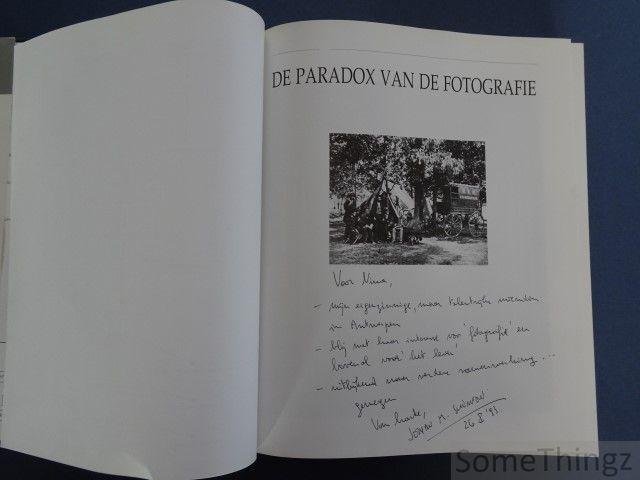 DE PARADOX VAN DE FOTOGRAFIE
Voor Nima,
- mijn eigenzinnige, maar talentrijke
in Antwerpen
- blij met haar interesse voor 'fotografie' en
bovenal voor 'het leven'
- uitkijkend naar verdere samenwerking ...
genegen
Van harte,
JOHAN M. SWINNEN
26 X '93
SomeThingz